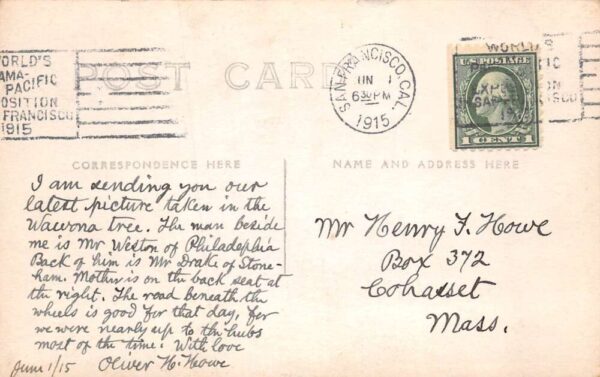 WORLD'S
AMA-PACIFIC
POSITION
FRANCISCO
1915
POST CARD
SAN FRANCISCO, CAL.
JUN 1
6 30 PM
1915
U.S. POSTAGE
1 CENT 1
CORRESPONDENCE HERE
NAME AND ADDRESS HERE
I am sending you our
latest picture taken in the
Wawona tree. The man beside
me is Mr Weston of Philadelphia
Back of him is Mr Drake of Stone-
ham. Mother is on the back seat at
the right. The road beneath the
wheels is good for that day, for
we were nearly up to the hubs
most of the time. With love
June 1/15 Oliver H. Howe
Mr Henry F. Howe
Box 372
Cohasset
Mass.